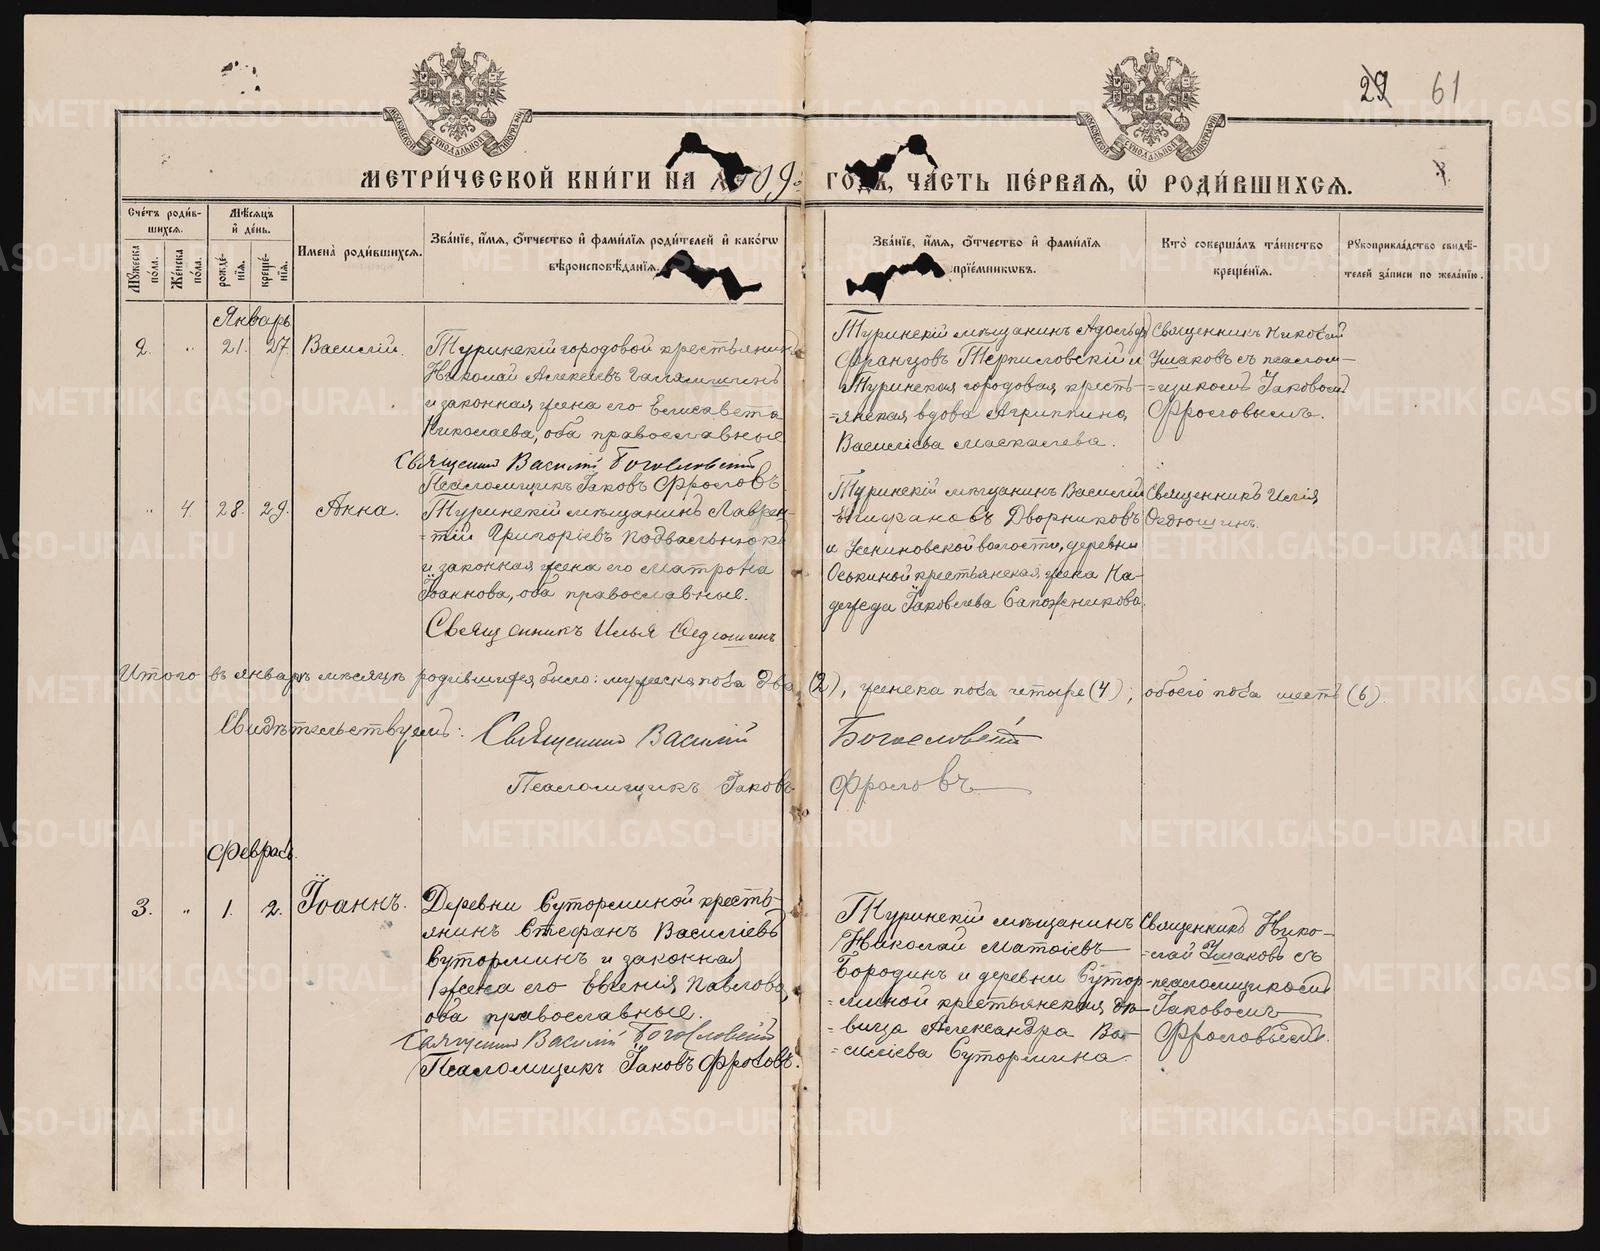 29 61
МОСКОВСКОЙ СѴНОДАЛЬНОЙ ТИПОГРАФІИ
МОСКОВСКОЙ СѴНОДАЛЬНОЙ ТИПОГРАФІИ
МЕТРИ́ЧЕСКОЙ КНИ́ГИ НА 1909 ГОДЪ, ЧА́СТЬ ПЕ́РВАЯ, Ѡ РОДИ́ВШИХСЯ.
Сче́тъ роди́в-
шихся.
Мꙋжеска по́ла.
Же́нска по́ла.
Мѣ́сяцъ
и де́нь.
рожде́-
нїя.
креще́-
нїя.
Имена̀ роди́вшихся.
Зва́нїе, и́мя, о́тчество и фами́лїя роди́телей и како́гѡ
вѣроисповѣ́данїя.
Зва́нїе, и́мя, о́тчество и фами́лїя
прїе́мникѡвъ.
Кто̀ соверша́лъ та́инство
креще́нїя.
Рꙋкоприкла́дство свидѣ́-
телей за́писи по жела́нїю.
Январь
2. " 21. 27. Василій.
Туринскій городовой крестьянинъ
Николай Алексѣевъ
и законная жена его Елисавета
Николаева, оба православные
Священник Василій Богословскій
Псаломщикъ Іаковъ Фроловъ
Туринскій мѣщанинъ Адольфъ
Францовъ и
Туринская городовая кресть-
=янская вдова Агриппина
Василіева Маскалева.
Священникъ Николай
Ушаковъ съ псалом-
=щикомъ Іаковомъ
Фроловымъ.
" 4. 28. 29. Анна.
Туринскій мѣщанинъ Лаврен-
=тій Григорьевъ
и законная жена его Матрона
Іоаннова, оба православные.
Священникъ Илья Федюшинъ
Туринскій мѣщанинъ Василій
Епифановъ Дворниковъ
и Усениновской волости, деревни
Оськиной крестьянская жена На-
дежда Іаковлева Сапожникова.
Священникъ Илія
Федюшинъ.
Итого въ январѣ мѣсяцѣ родившихся было: мужеска пола два (2), женска пола четыре (4), обоего пола шесть (6).
Свидѣтельствуемъ: Священник Василій Богословскій
Псаломщикъ Іаковъ Фроловъ
Февраль.
3. " 1. 2. Іоаннъ.
Деревни Суторминой кресть-
янинъ Стефанъ Василіевъ
Сутoрминъ и законная
жена его Евгенія Павлова,
оба православные.
Священник Василій Богословскій
Псаломщикъ Іаковъ Фроловъ.
Туринскій мѣщанинъ
Николай Матѳіевъ
Бородинъ и деревни Сутор-
=миной крестьянская дѣ-
=вица Александра Ва-
=силіева Сутормина.
Священникъ Нико-
=лай Ушаковъ съ
псаломщикомъ
Іаковомъ
Фроловымъ.
METRIKI.GASO-URAL.RU